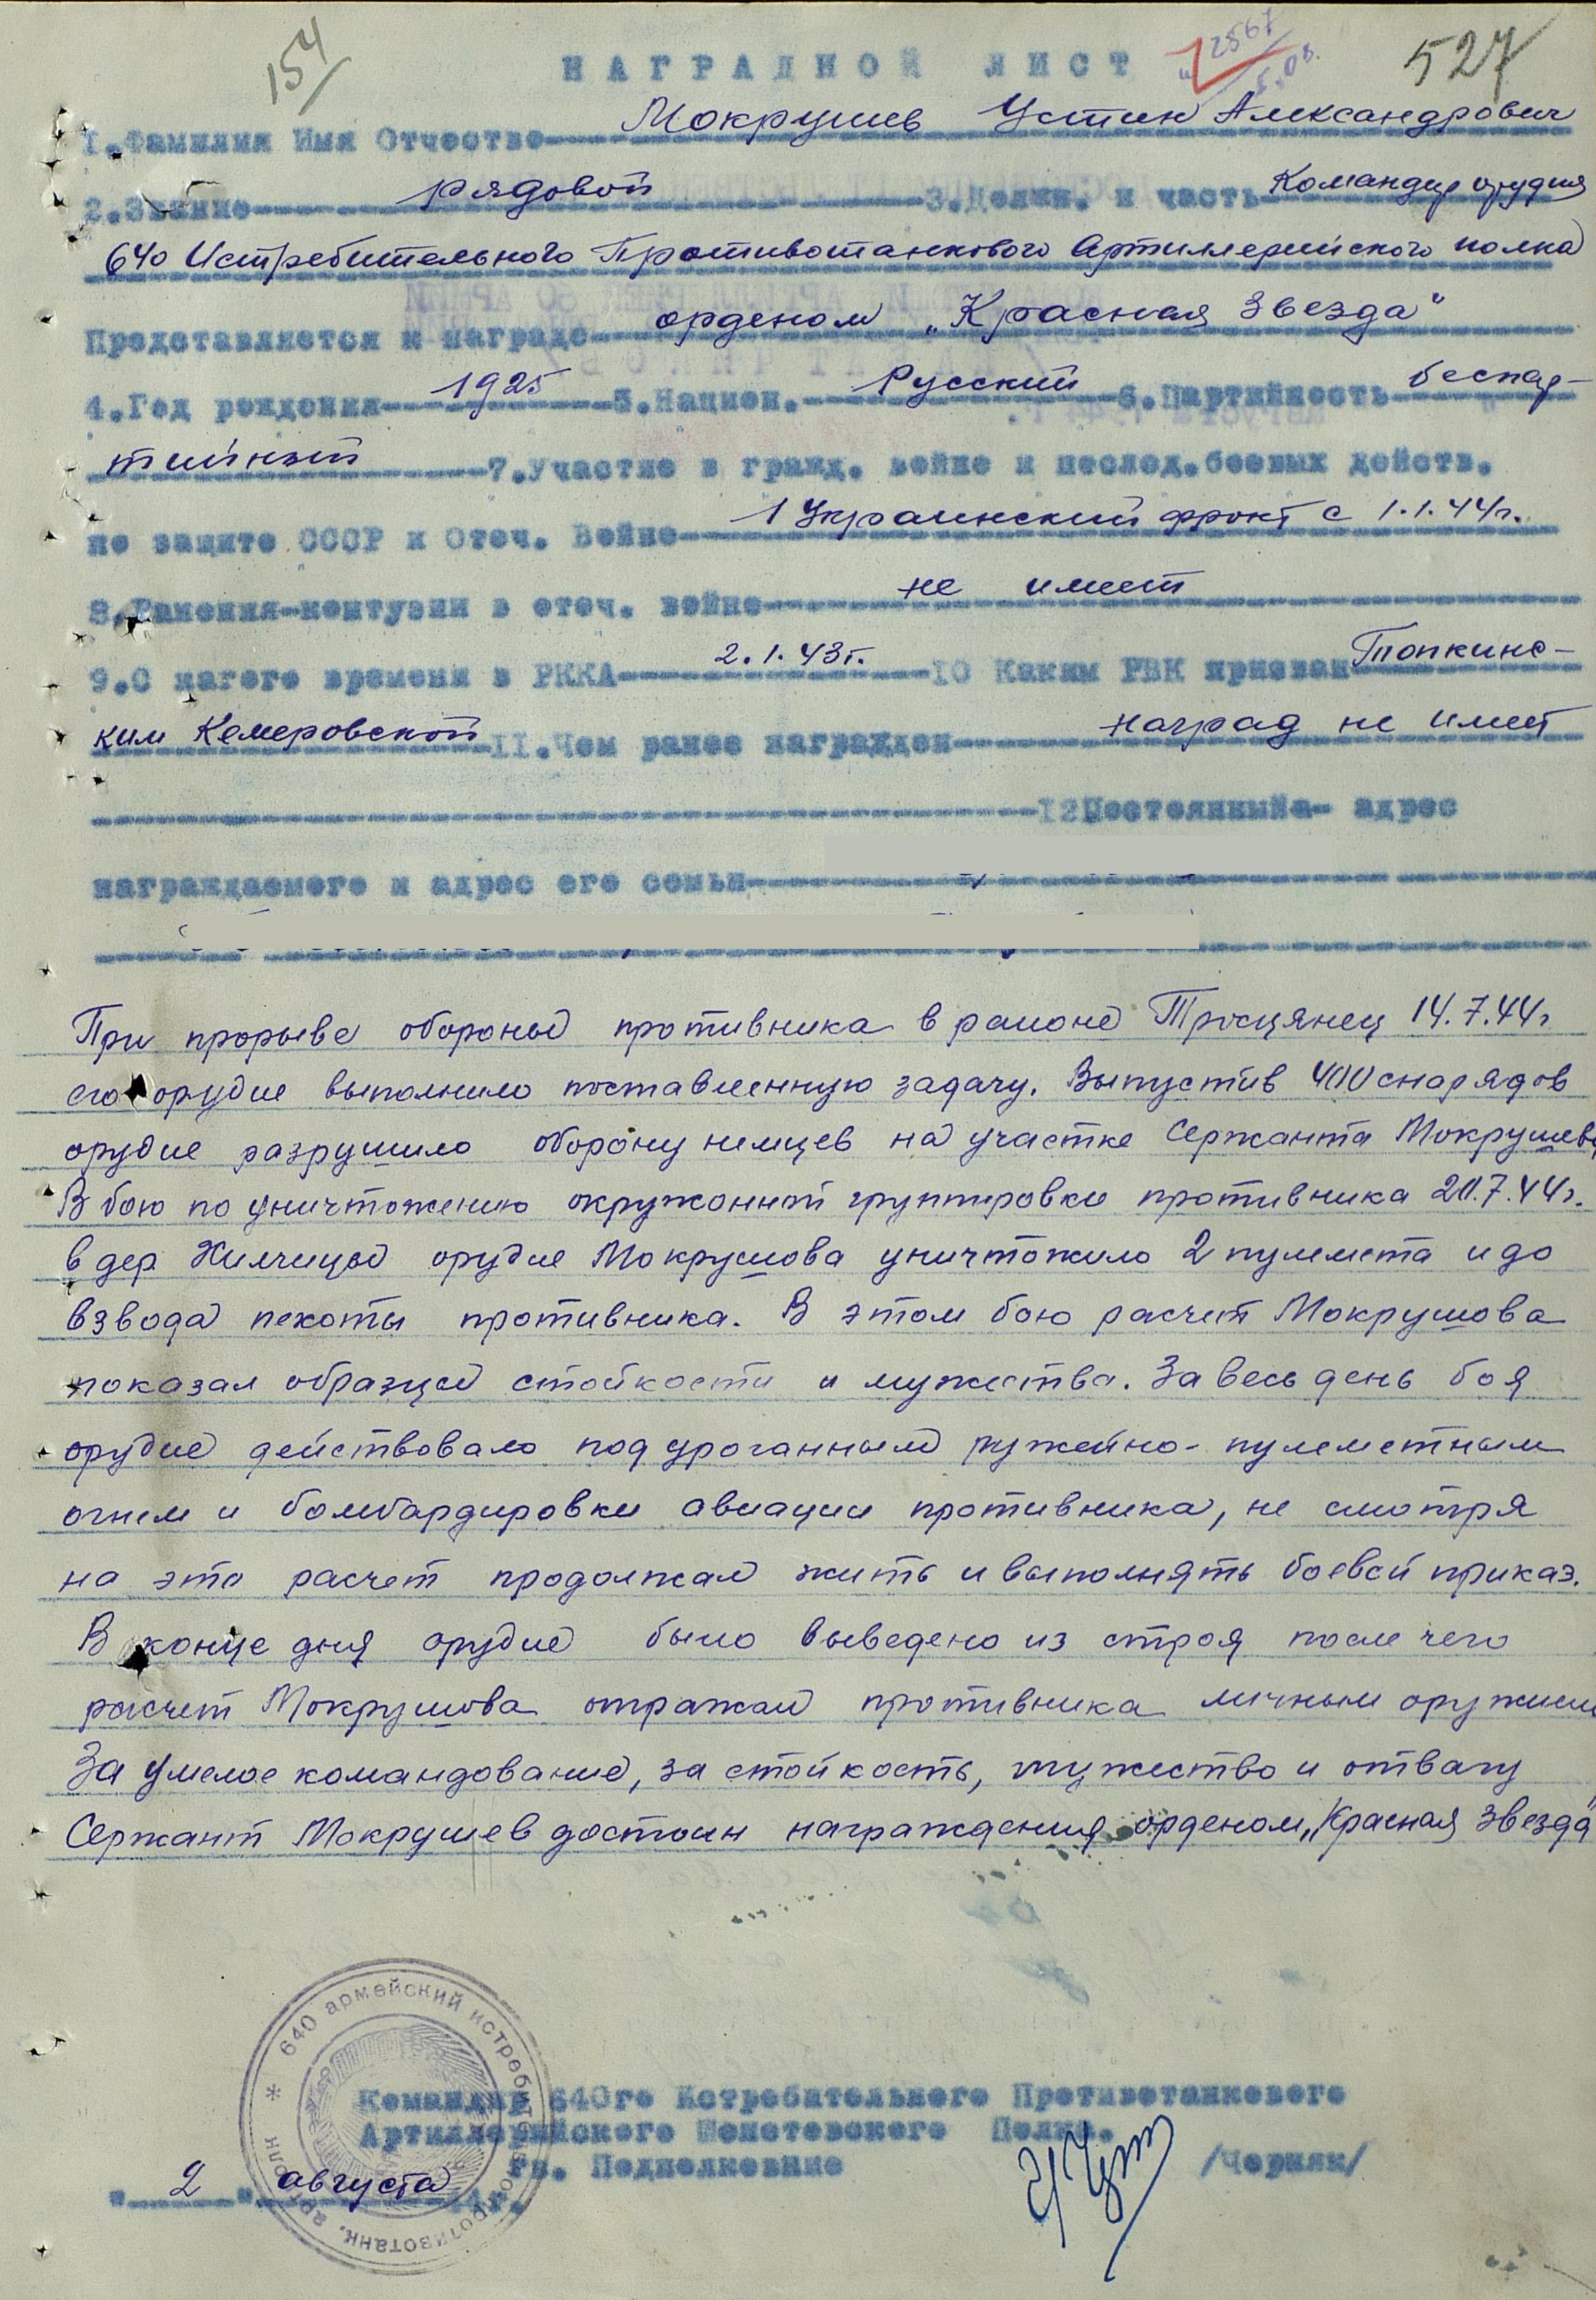 154
2567
527
НАГРАДНОЙ ЛИСТ
1.Фамилия Имя Отчество Мокрушев Устин Александрович
2.Звание рядовой 3.Должн. и часть Командир орудия
640 Истребительного Противотанкового Артиллерийского полка
Представляется к награде орденом „Красная Звезда"
4.Год рождения 1925 5.Национ. Русский 6.Партийность беспар-
тийный 7.Участие в гражд. войне и послед.боевых действ.
по защите СССР и Отеч. Войне 1 Украинский фронт с 1.1.44г.
8.Ранения-контузии в отеч. войне не имеет
9.С кагого времени в РККА 2.1.43г. 10 Каким РВК призван Топкинс-
ким Кемеровской 11.Чем ранее награжден наград не имеет
12Постоянный адрес
награждаемого и адрес его семьи
При прорыве обороны противника в районе Тросцянец 14.7.44г
его орудие выполнило поставленную задачу. Выпустив 400 снарядов
орудие разрушило оборону немцев на участке Сержанта Мокрушева
В бою по уничтожению окружонной группировки противника 20.7.44г.
в дер Хилчицы орудие Мокрушова уничтожило 2 пулемета и до
взвода пехоты противника. В этом бою расчет Мокрушова
показал образцы стойкости и мужества. За весь день боя
орудие действовало под ураганным ружейно-пулеметным
огнем и бомбардировки авиации противника, не смотря
на это расчет продолжал жить и выполнять боевой приказ.
В конце дня орудие было выведено из строя после чего
расчет Мокрушова отражал противника личным оружием
За умелое командование, за стойкость, мужество и отвагу
Сержант Мокрушев достоин награждения орденом „Красная Звезда"
640 армейский истребительно противотанк. артполк
Командир 640го Истребительного Противотанкового
Артиллерийского Шепетовского Полка.
Гв. Подполковник /Черняк/
"2" августа 4г.